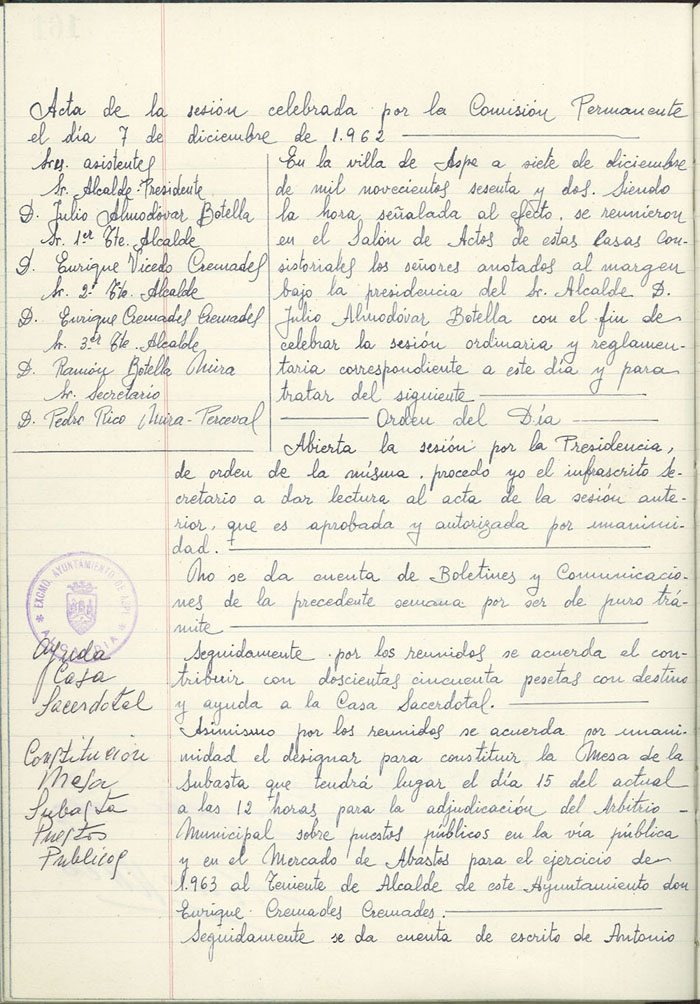 Acta de la sesión celebrada por la Comisión Permanente
el día 7 de diciembre de 1.962
Sres. asistentes
Sr. Alcalde-Presidente
D. Julio Almodóvar Botella
Sr. 1er Tte. Alcalde
D. Enrique Vicedo Cremades
Sr. 2º Tte. Alcalde
D. Enrique Cremades Cremades
Sr. 3er Tte. Alcalde
D. Ramón Botella Mira
Sr. Secretario
D. Pedro Rico Mira-Perceval
En la villa de Aspe a siete de diciembre
de mil novecientos sesenta y dos. Siendo
la hora señalada al efecto, se reunieron
en el Salón de Actos de estas Casas Con-
sistoriales los señores anotados al margen
bajo la presidencia del Sr. Alcalde D.
Julio Almodóvar Botella con el fin de
celebrar la sesión ordinaria y reglamen-
taria correspondiente a este día y para
tratar del siguiente
Orden del Día
Abierta la sesión por la Presidencia,
de orden de la misma, procedo yo el infrascrito Se-
cretario a dar lectura al acta de la sesión ante-
rior, que es aprobada y autorizada por unanimi-
dad.
No se da cuenta de Boletines y Comunicacio-
nes de la precedente semana por ser de puro trá-
mite
EXCMO. AYUNTAMIENTO DE ASPE
ALCALDIA
Ayuda
Casa
Sacerdotal
Seguidamente por los reunidos se acuerda el con-
tribuir con doscientas cincuenta pesetas con destino
y ayuda a la Casa Sacerdotal.
Constitución
Mesa
Subasta
Puestos
Publicos
Asimismo por los reunidos se acuerda por unani-
midad el designar para constituir la Mesa de la
Subasta que tendrá lugar el día 15 del actual
a las 12 horas para la adjudicación del Arbitrio
Municipal sobre puestos públicos en la vía pública
y en el Mercado de Abastos para el ejercicio de
1.963 al Teniente de Alcalde de este Ayuntamiento don
Enrique Cremades Cremades.
Seguidamente se da cuenta de escrito de Antonio